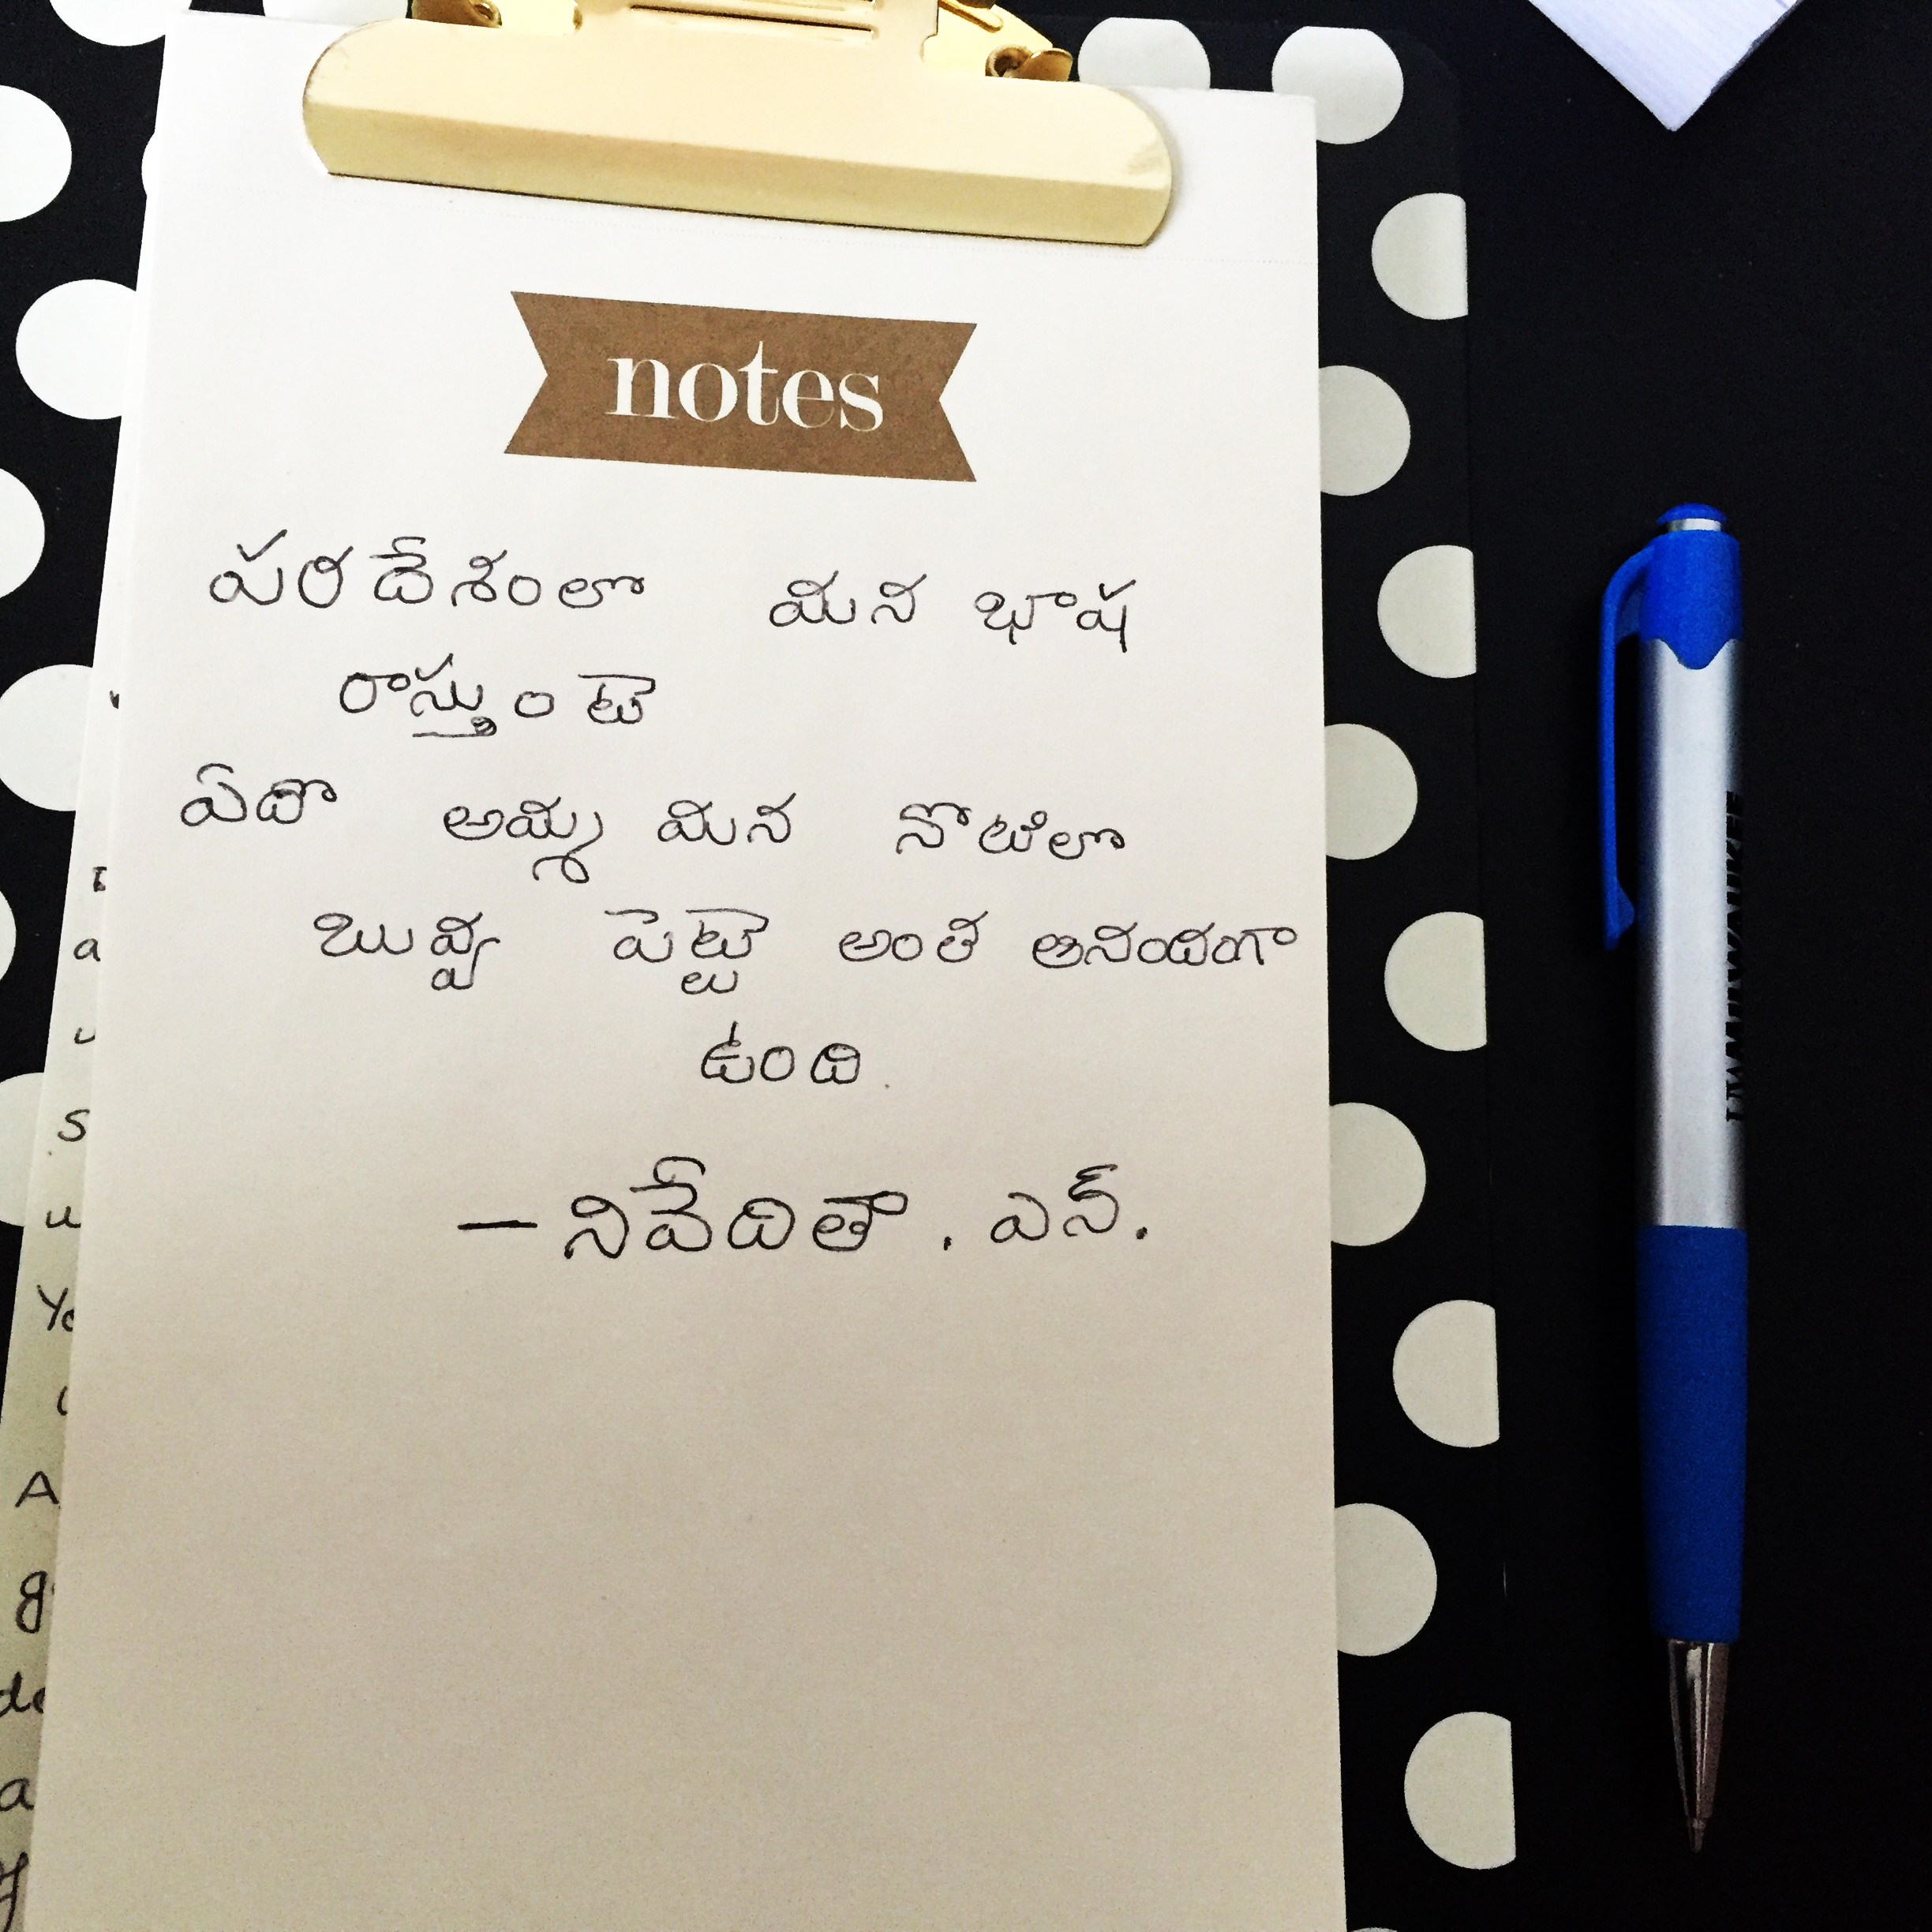 notes
పరదేశంలో మన భాష
రాస్తుంటె
ఏదొ అమ్మ మన నోటిలొ
బువ్వ పెట్టె అంత ఆనందంగా
ఉంది.
— నివేదితా . ఎన్.